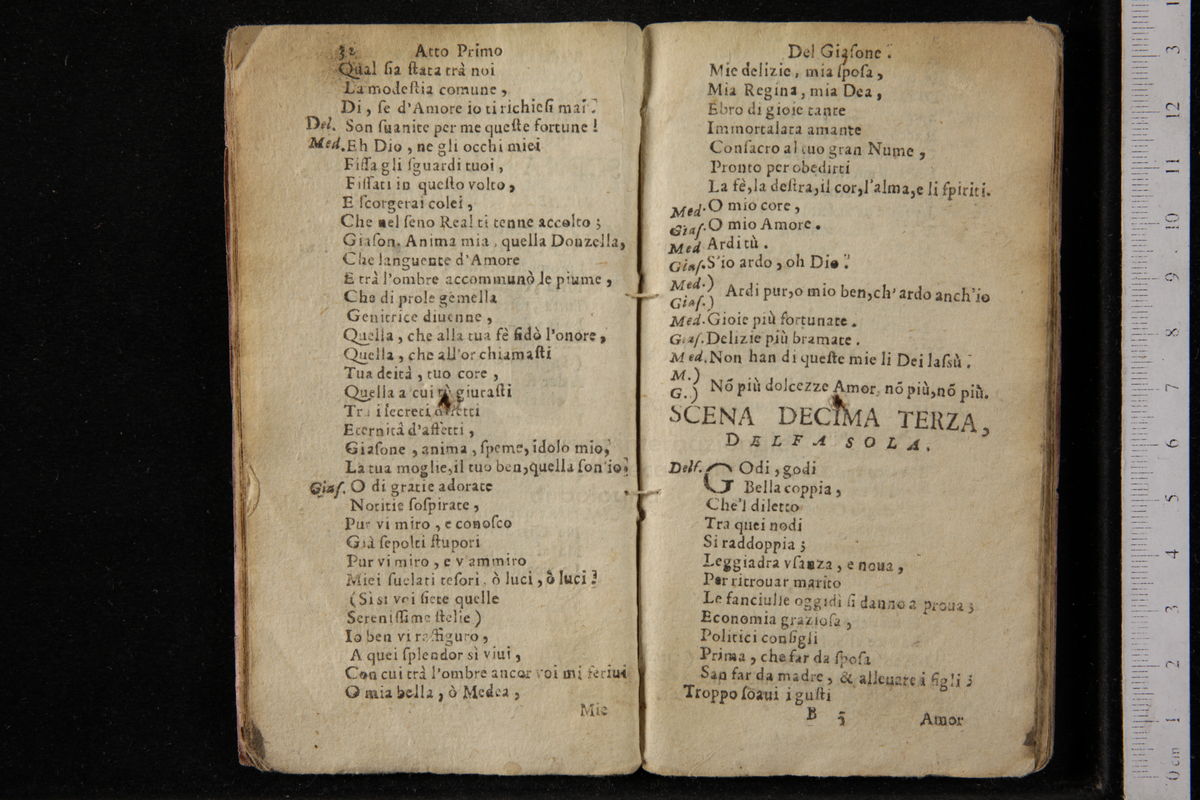 32 Atto Primo
Qual sia stata trà noi
La modestia comune,
Di, se d'Amore io ti richiesi mai?
Del. Son suanite per me queste fortune!
Med. Eh Dio, ne gli occhi miei
Fissa gli sguardi tuoi,
Fissati in questo volto,
E scorgerai colei,
Che nel seno Real ti tenne accolto;
Giason. Anima mia, quella Donzella,
Che languente d'Amore
E trà l'ombre accommunò le piume,
Che di prole gemella
Genitrice diuenne,
Quella, che alla tua fè fidò l'onore,
Quella, che all'or chiamasti
Tua deità, tuo core,
Quella a cui tù giurasti
Tra i secreti
Eternità d'affetti,
Giasone, anima, speme, idolo mio,
La tua moglie, il tuo ben, quella son'io?
Gias. O di gratie adorate
Notitie sospirate,
Pur vi miro, e conosco
Già sepolti stupori
Pur vi miro, e v'ammiro
Miei suelati tesori, ò luci, ò luci!
(Si si voi siete quelle
Serenissime stelle)
Io ben vi raffiguro,
A quei splendor sì viui,
Con cui trà l'ombre ancor voi mi feriui
O mia bella, ò Medea,
Mie
Del Giasone.
Mie delizie, mia sposa,
Mia Regina, mia Dea,
Ebro di gioie tante
Immortalata amante
Consacro al tuo gran Nume,
Pronto per obedirti
La fè, la destra, il cor, l'alma, e li spiriti.
Med. O mio core,
Gias. O mio Amore.
Med Ardi tù.
Gias. S'io ardo, oh Dio?
Med.)
Gias.) Ardi pur, o mio ben, ch'ardo anch'io
Med. Gioie più fortunate.
Gias. Delizie più bramate.
Med. Non han di queste mie li Dei lassù?
M.)
G.) Nõ più dolcezze Amor, nõ più, nõ più.
SCENA DECIMA TERZA,
DELFA SOLA.
Delf. GOdi, godi
Bella coppia,
Che'l diletto
Tra quei nodi
Si raddoppia;
Leggiadra vsanza, e noua,
Per ritrouar marito
Le fanciulle oggidì si danno a proua;
Economia graziosa,
Politici consigli
Prima, che far da sposa
San far da madre, & alleuare i figli;
Troppo soaui i gusti
B 5 Amor